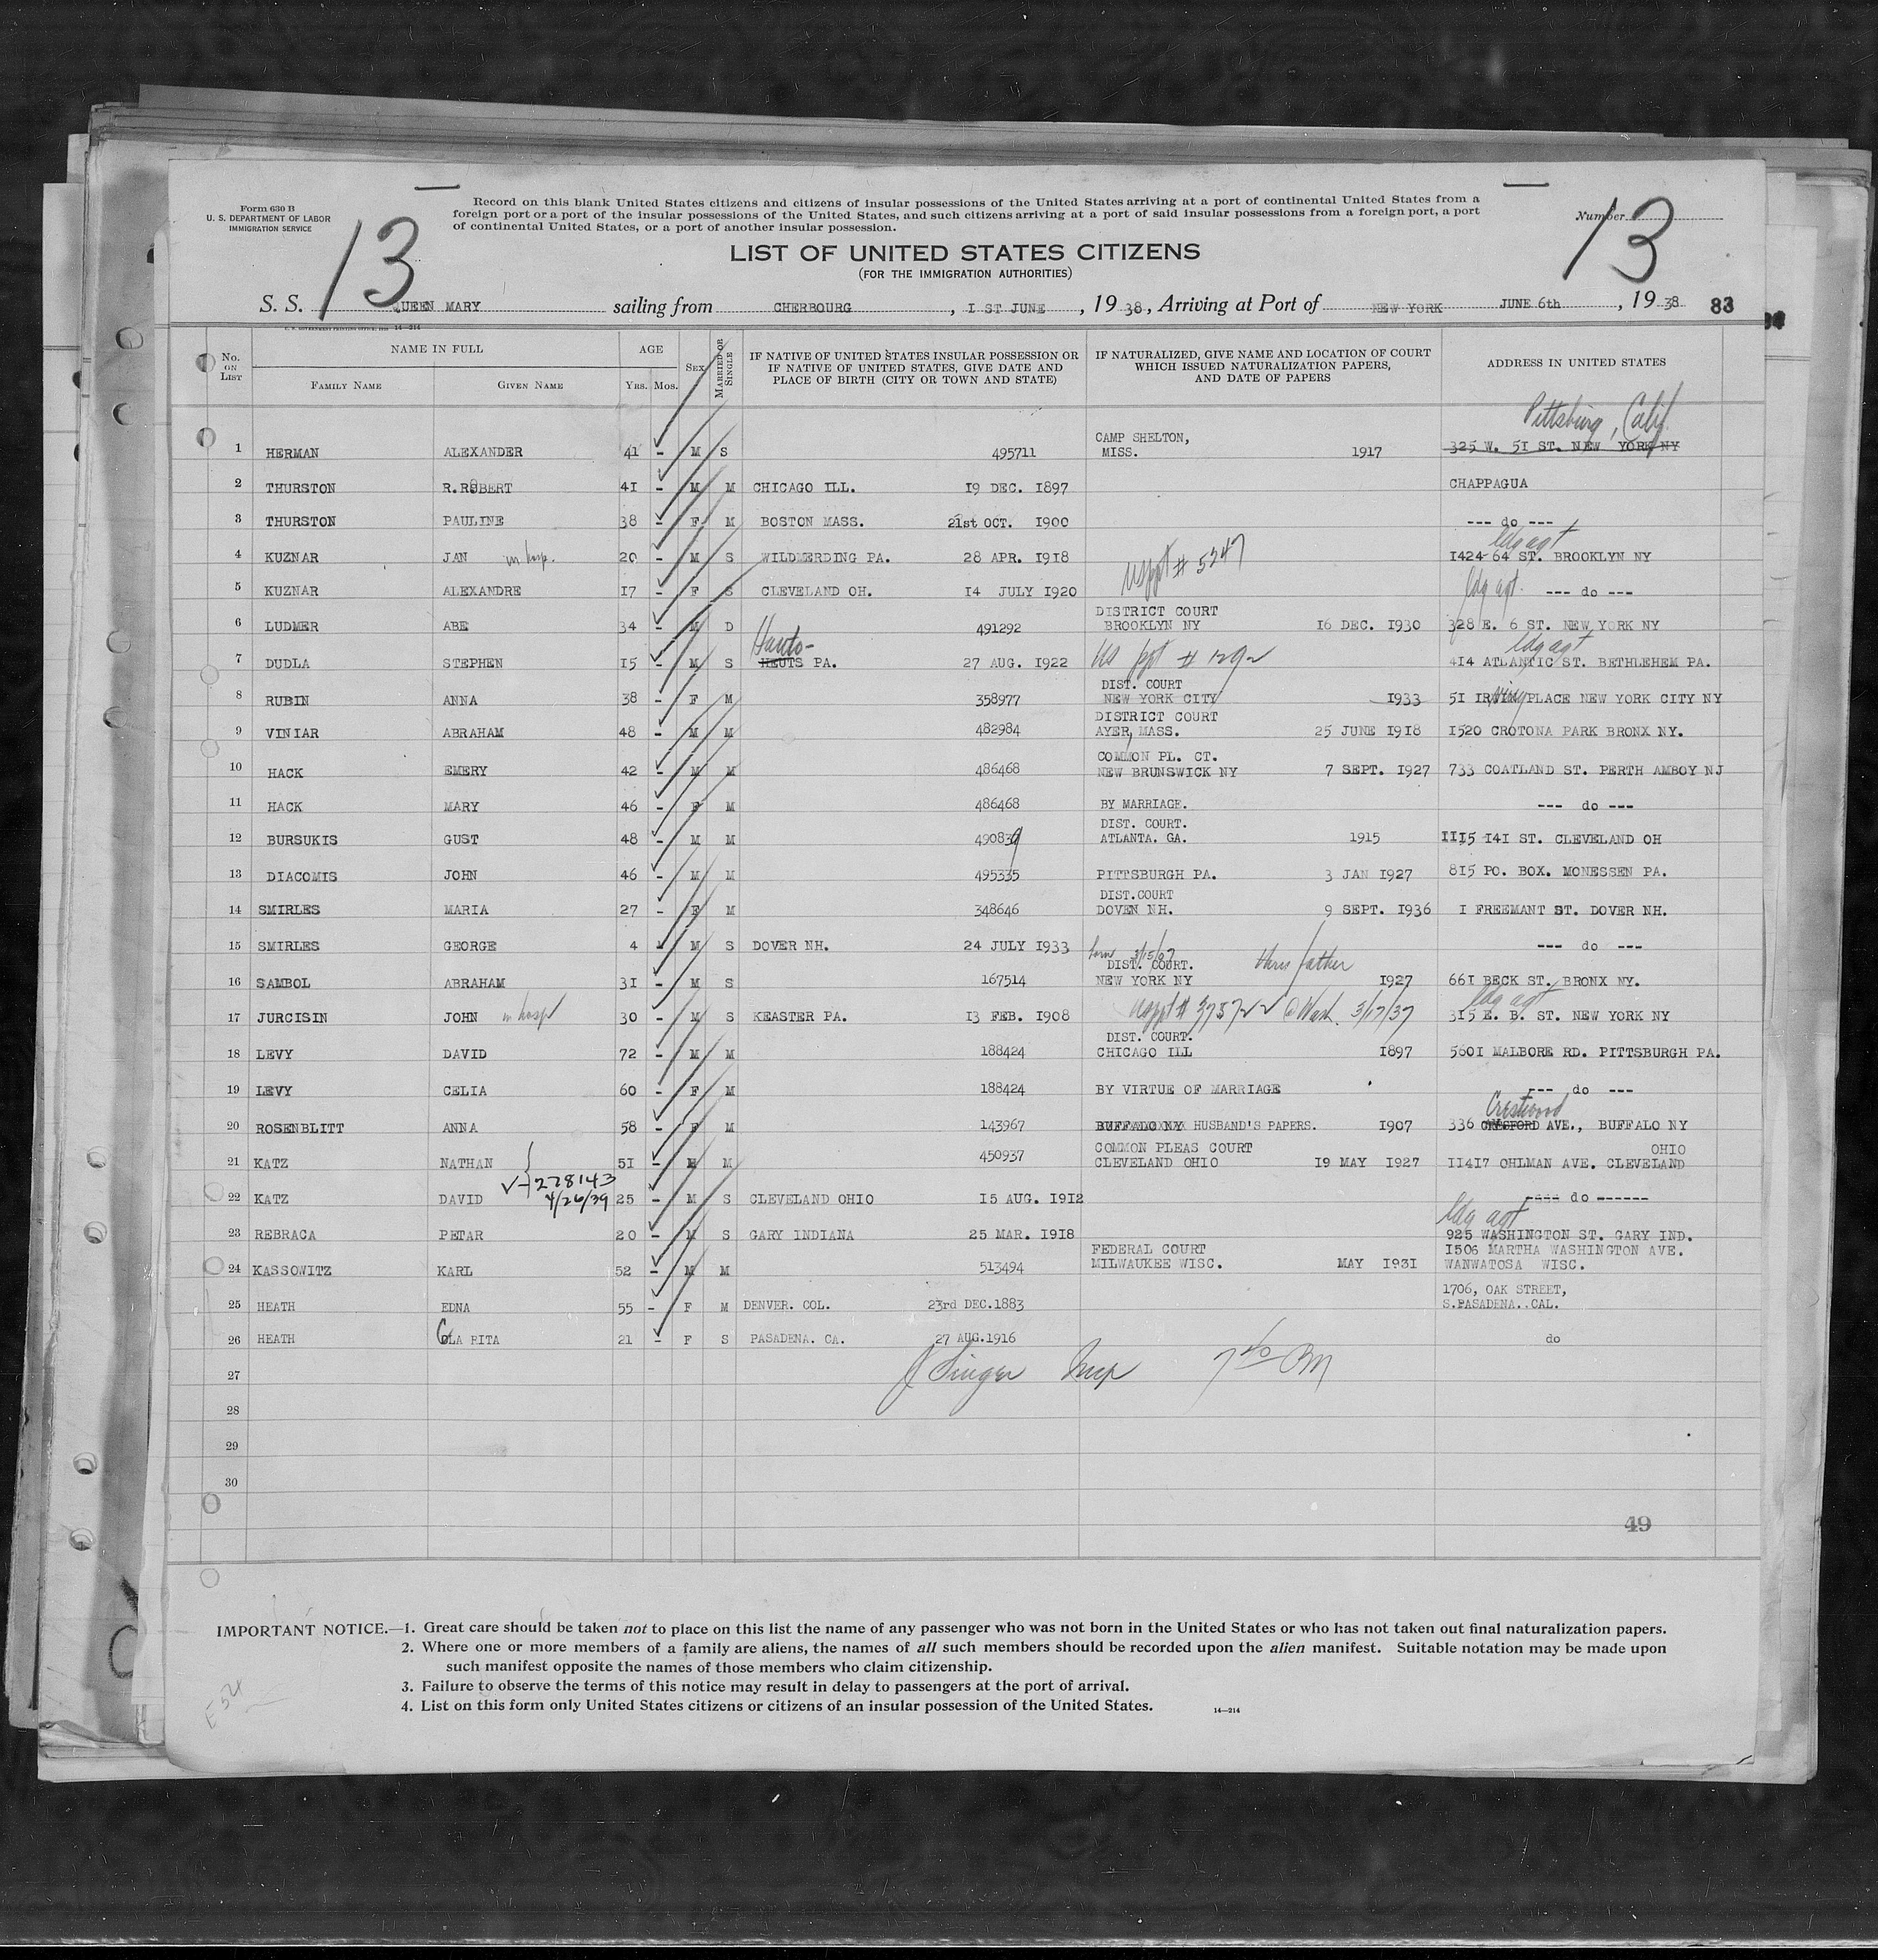 Form 630 B
U. S. DEPARTMENT OF LABOR
IMMIGRATION SERVICE
13
Record on this blank United States citizens and citizens of insular possessions of the United States arriving at a port of continental United States from a
foreign port or a port of the insular possessions of the United States, and such citizens arriving at a port of said insular possessions from a foreign port, a port
of continental United States, or a port of another insular possession.
Number 13
LIST OF UNITED STATES CITIZENS
(FOR THE IMMIGRATION AUTHORITIES)
S. S. QUEEN MARY sailing from CHERBOURG, I ST JUNE, 1938, Arriving at Port of NEW YORK JUNE 6th, 1938 83
No. ON LIST
NAME IN FULL
FAMILY NAME GIVEN NAME
AGE
YRS. MOS.
SEX
MARRIED OR SINGLE
IF NATIVE OF UNITED STATES INSULAR POSSESSION OR
IF NATIVE OF UNITED STATES, GIVE DATE AND
PLACE OF BIRTH (CITY OR TOWN AND STATE)
IF NATURALIZED, GIVE NAME AND LOCATION OF COURT
WHICH ISSUED NATURALIZATION PAPERS,
AND DATE OF PAPERS
ADDRESS IN UNITED STATES
Pittsburg, Calif
CAMP SHELTON,
1 HERMAN ALEXANDER 41 - M S 495711 MISS. 1917 325 W. 51 ST. NEW YORK NY
2 THURSTON R.ROBERT 41 - M M CHICAGO ILL. 19 DEC. 1897 CHAPPAGUA
3 THURSTON PAULINE 38 - F M BOSTON MASS. 21st OCT. 1900 --- do ---
ldg agt
4 KUZNAR JAN in hosp. 20 - M S WILDMERDING PA. 28 APR. 1918 1424-64 ST. BROOKLYN NY
US ppt # 5247
5 KUZNAR ALEXANDRE 17 - F S CLEVELAND OH. 14 JULY 1920 ldg agt. --- do ---
DISTRICT COURT
6 LUDMER ABE 34 - M D 491292 BROOKLYN NY 16 DEC. 1930 328 E. 6 ST. NEW YORK NY
Hauto- ldg agt
7 DUDLA STEPHEN 15 - M S HEUTS PA. 27 AUG. 1922 US ppt # 1292 414 ATLANTIC ST. BETHLEHEM PA.
DIST. COURT
8 RUBIN ANNA 38 - F M 358977 NEW YORK CITY 1933 51 IRVING PLACE NEW YORK CITY NY
DISTRICT COURT
9 VINIAR ABRAHAM 48 - M M 482984 AYER, MASS. 25 JUNE 1918 1520 CROTONA PARK BRONX NY.
COMMON PL. CT.
10 HACK EMERY 42 - M M 486468 NEW BRUNSWICK NY 7 SEPT. 1927 733 COATLAND ST. PERTH AMBOY NJ
11 HACK MARY 46 - F M 486468 BY MARRIAGE. --- do ---
DIST. COURT.
12 BURSUKIS GUST 48 - M M 490839 ATLANTA. GA. 1915 1115 141 ST. CLEVELAND OH
13 DIACOMIS JOHN 46 - M M 495335 PITTSBURGH PA. 3 JAN 1927 815 PO. BOX. MONESSEN PA.
DIST.COURT
14 SMIRLES MARIA 27 - F M 348646 DOVEN NH. 9 SEPT. 1936 I FREEMANT ST. DOVER NH.
15 SMIRLES GEORGE 4 - M S DOVER NH. 24 JULY 1933 --- do ---
born 3/15/07 thru father
DIST. COURT.
16 SAMBOL ABRAHAM 31 - M S 167514 NEW YORK NY 1927 661 BECK ST. BRONX NY.
ldg agt
17 JURCISIN JOHN in hosp 30 - M S KEASTER PA. 13 FEB. 1908 US ppt # @ Wash. 3/17/37 315 E. B. ST. NEW YORK NY
DIST. COURT.
18 LEVY DAVID 72 - M M 188424 CHICAGO ILL 1897 5601 MALBORE RD. PITTSBURGH PA.
19 LEVY CELIA 60 - F M 188424 BY VIRTUE OF MARRIAGE --- do ---
Crestwood
20 ROSENBLITT ANNA 58 - F M 143967 BUFFALO NY HUSBAND'S PAPERS. 1907 336 AVE., BUFFALO NY
COMMON PLEAS COURT OHIO
21 KATZ NATHAN 51 - M M 450937 CLEVELAND OHIO 19 MAY 1927 11417 OHLMAN AVE. CLEVELAND
V-1278143
4/26/39
22 KATZ DAVID 25 - M S CLEVELAND OHIO 15 AUG. 1912 ---- do ------
ldg agt
23 REBRACA PETAR 20 - M S GARY INDIANA 25 MAR. 1918 925 WASHINGTON ST. GARY IND.
FEDERAL COURT 1506 MARTHA WASHINGTON AVE.
24 KASSOWITZ KARL 52 - M M 513494 MILWAUKEE WISC. MAY 1931 WANWATOSA WISC.
1706, OAK STREET,
25 HEATH EDNA 55 - F M DENVER. COL. 23rd DEC.1883 S.PASADENA..CAL.
26 HEATH CLA RITA 21 - F S PASADENA. CA. 27 AUG.1916 do
27 J Singer Insp
28
29
30
49
IMPORTANT NOTICE.—1. Great care should be taken not to place on this list the name of any passenger who was not born in the United States or who has not taken out final naturalization papers.
2. Where one or more members of a family are aliens, the names of all such members should be recorded upon the alien manifest. Suitable notation may be made upon
such manifest opposite the names of those members who claim citizenship.
3. Failure to observe the terms of this notice may result in delay to passengers at the port of arrival.
4. List on this form only United States citizens or citizens of an insular possession of the United States.
14—214